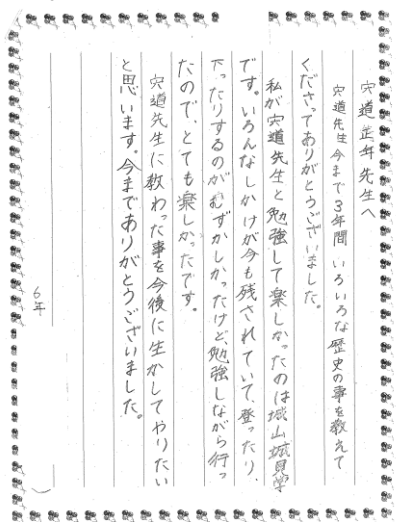 宍道正年先生へ
宍道先生今まで3年間いろいろな歴史の事を教えて
くださってありがとうございました。
私が宍道先生と勉強して楽しかったのは城山城見学
です。いろんなしかけが今も残されていて、登ったり、
下ったりするのがむずかしかったけど、勉強しながら行っ
たので、とても楽しかったです。
宍道先生に教わった事を今後に生かしてやりたい
と思います。今までありがとうございました。
6年